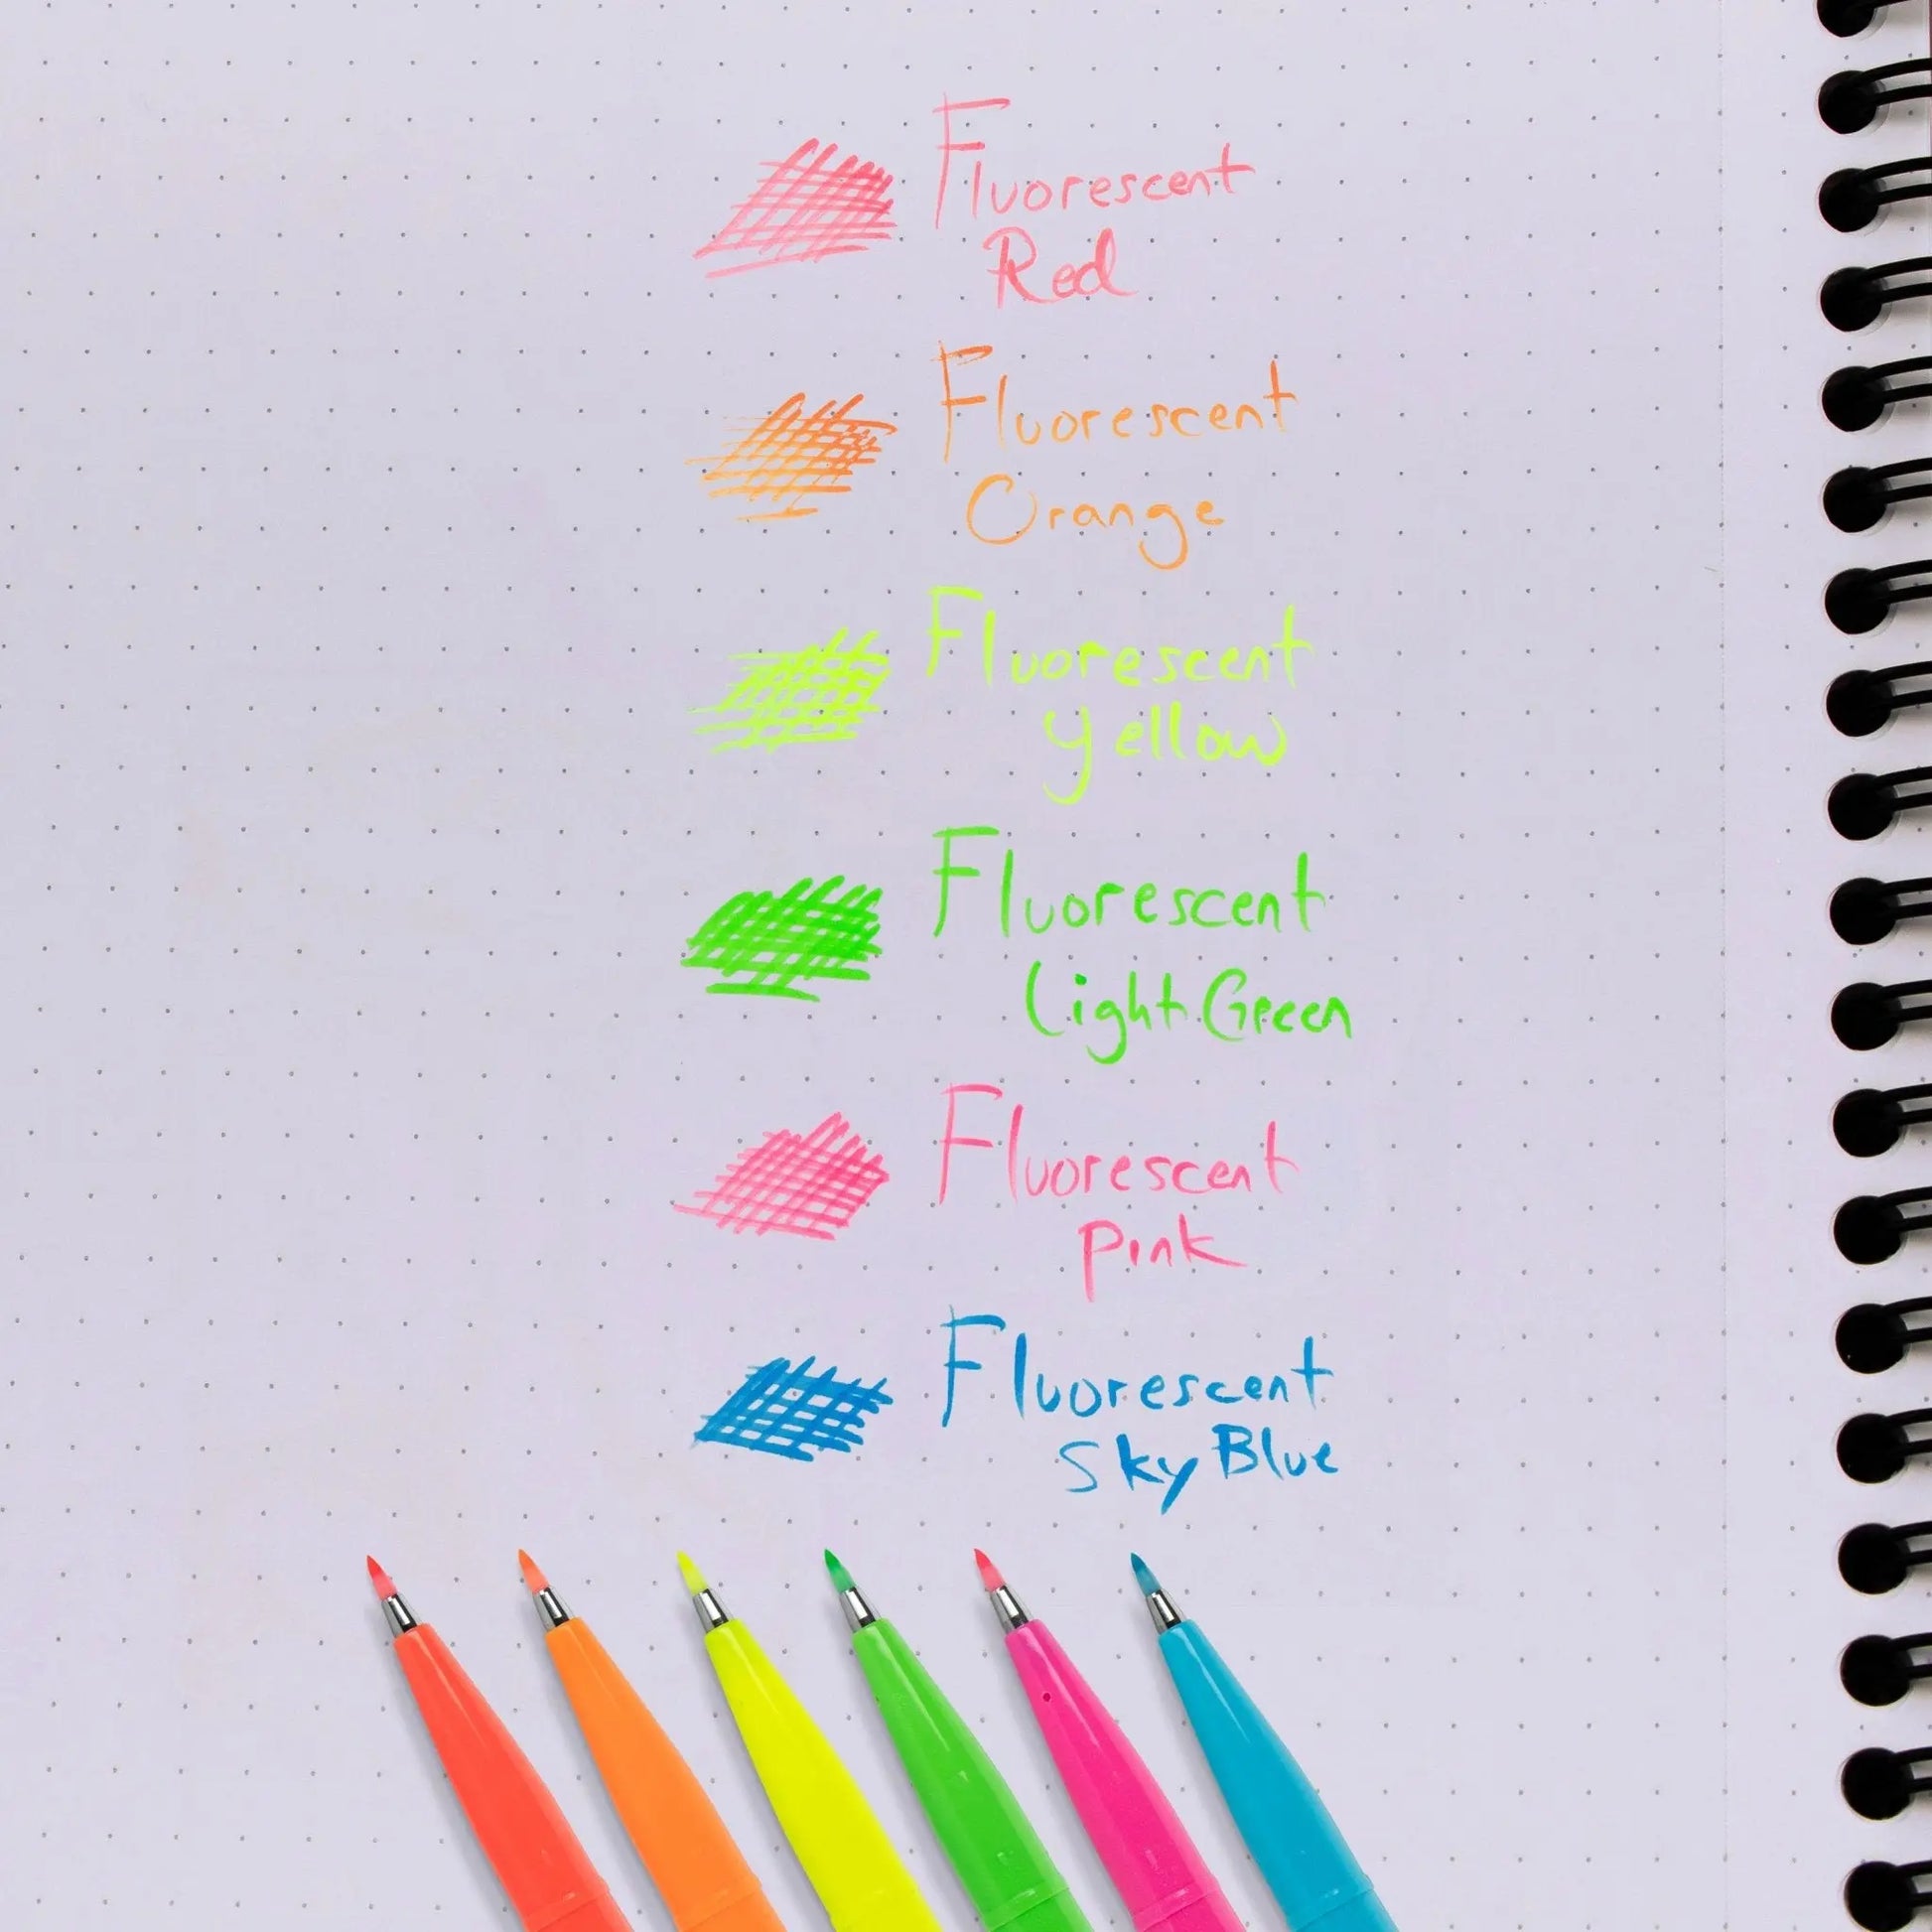 Fluorescent
Red
Fluorescent
Orange
Fluorescent
Yellow
Fluorescent
Light Green
Fluorescent
Pink
Fluorescent
Sky Blue